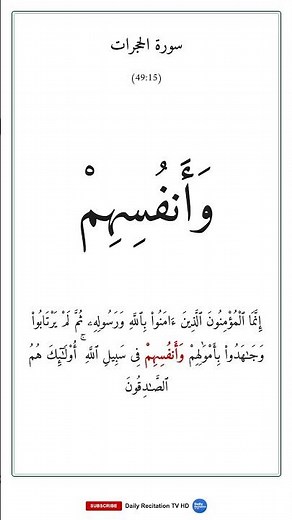 سورة الحجرات
(49:15)
وَأَنفُسِهِمْ
إِنَّمَا ٱلْمُؤْمِنُونَ ٱلَّذِينَ ءَامَنُوا۟ بِٱللَّهِ وَرَسُولِهِۦ ثُمَّ لَمْ يَرْتَابُوا۟
وَجَـٰهَدُوا۟ بِأَمْوَٰلِهِمْ وَأَنفُسِهِمْ فِى سَبِيلِ ٱللَّهِ ۚ أُو۟لَـٰٓئِكَ هُمُ
ٱلصَّـٰدِقُونَ
SUBSCRIBE Daily Recitation TV HD